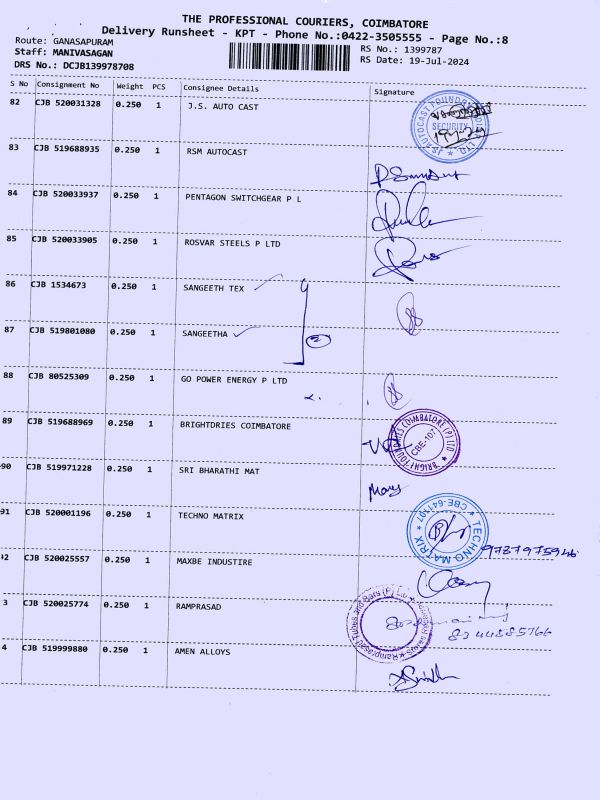 THE PROFESSIONAL COURIERS, COIMBATORE
Delivery Runsheet - KPT - Phone No.:0422-3505555 - Page No.:8
Route: GANASAPURAM
RS No.: 1399787
Staff: MANIVASAGAN
RS Date: 19-Jul-2024
DRS No.: DCJB139978708
S No Consignment No Weight PCS Consignee Details Signature
82 CJB 520031328 0.250 1 J.S. AUTO CAST
SECURITY
83 CJB 519688935 0.250 1 RSM AUTOCAST
84 CJB 520033937 0.250 1 PENTAGON SWITCHGEAR P L
85 CJB 520033905 0.250 1 ROSVAR STEELS P LTD
86 CJB 1534673 0.250 1 SANGEETH TEX
87 CJB 519801080 0.250 1 SANGEETHA
2
88 CJB 80525309 0.250 1 GO POWER ENERGY P LTD
89 CJB 519688969 0.250 1 BRIGHTDRIES COIMBATORE
CBE-107
90 CJB 519971228 0.250 1 SRI BHARATHI MAT
Mary
91 CJB 520001196 0.250 1 TECHNO MATRIX
TECHNO MATRIX * CBE-641107
9787975946
92 CJB 520025557 0.250 1 MAXBE INDUSTIRE
3 CJB 520025774 0.250 1 RAMPRASAD
8244885766
4 CJB 519999880 0.250 1 AMEN ALLOYS